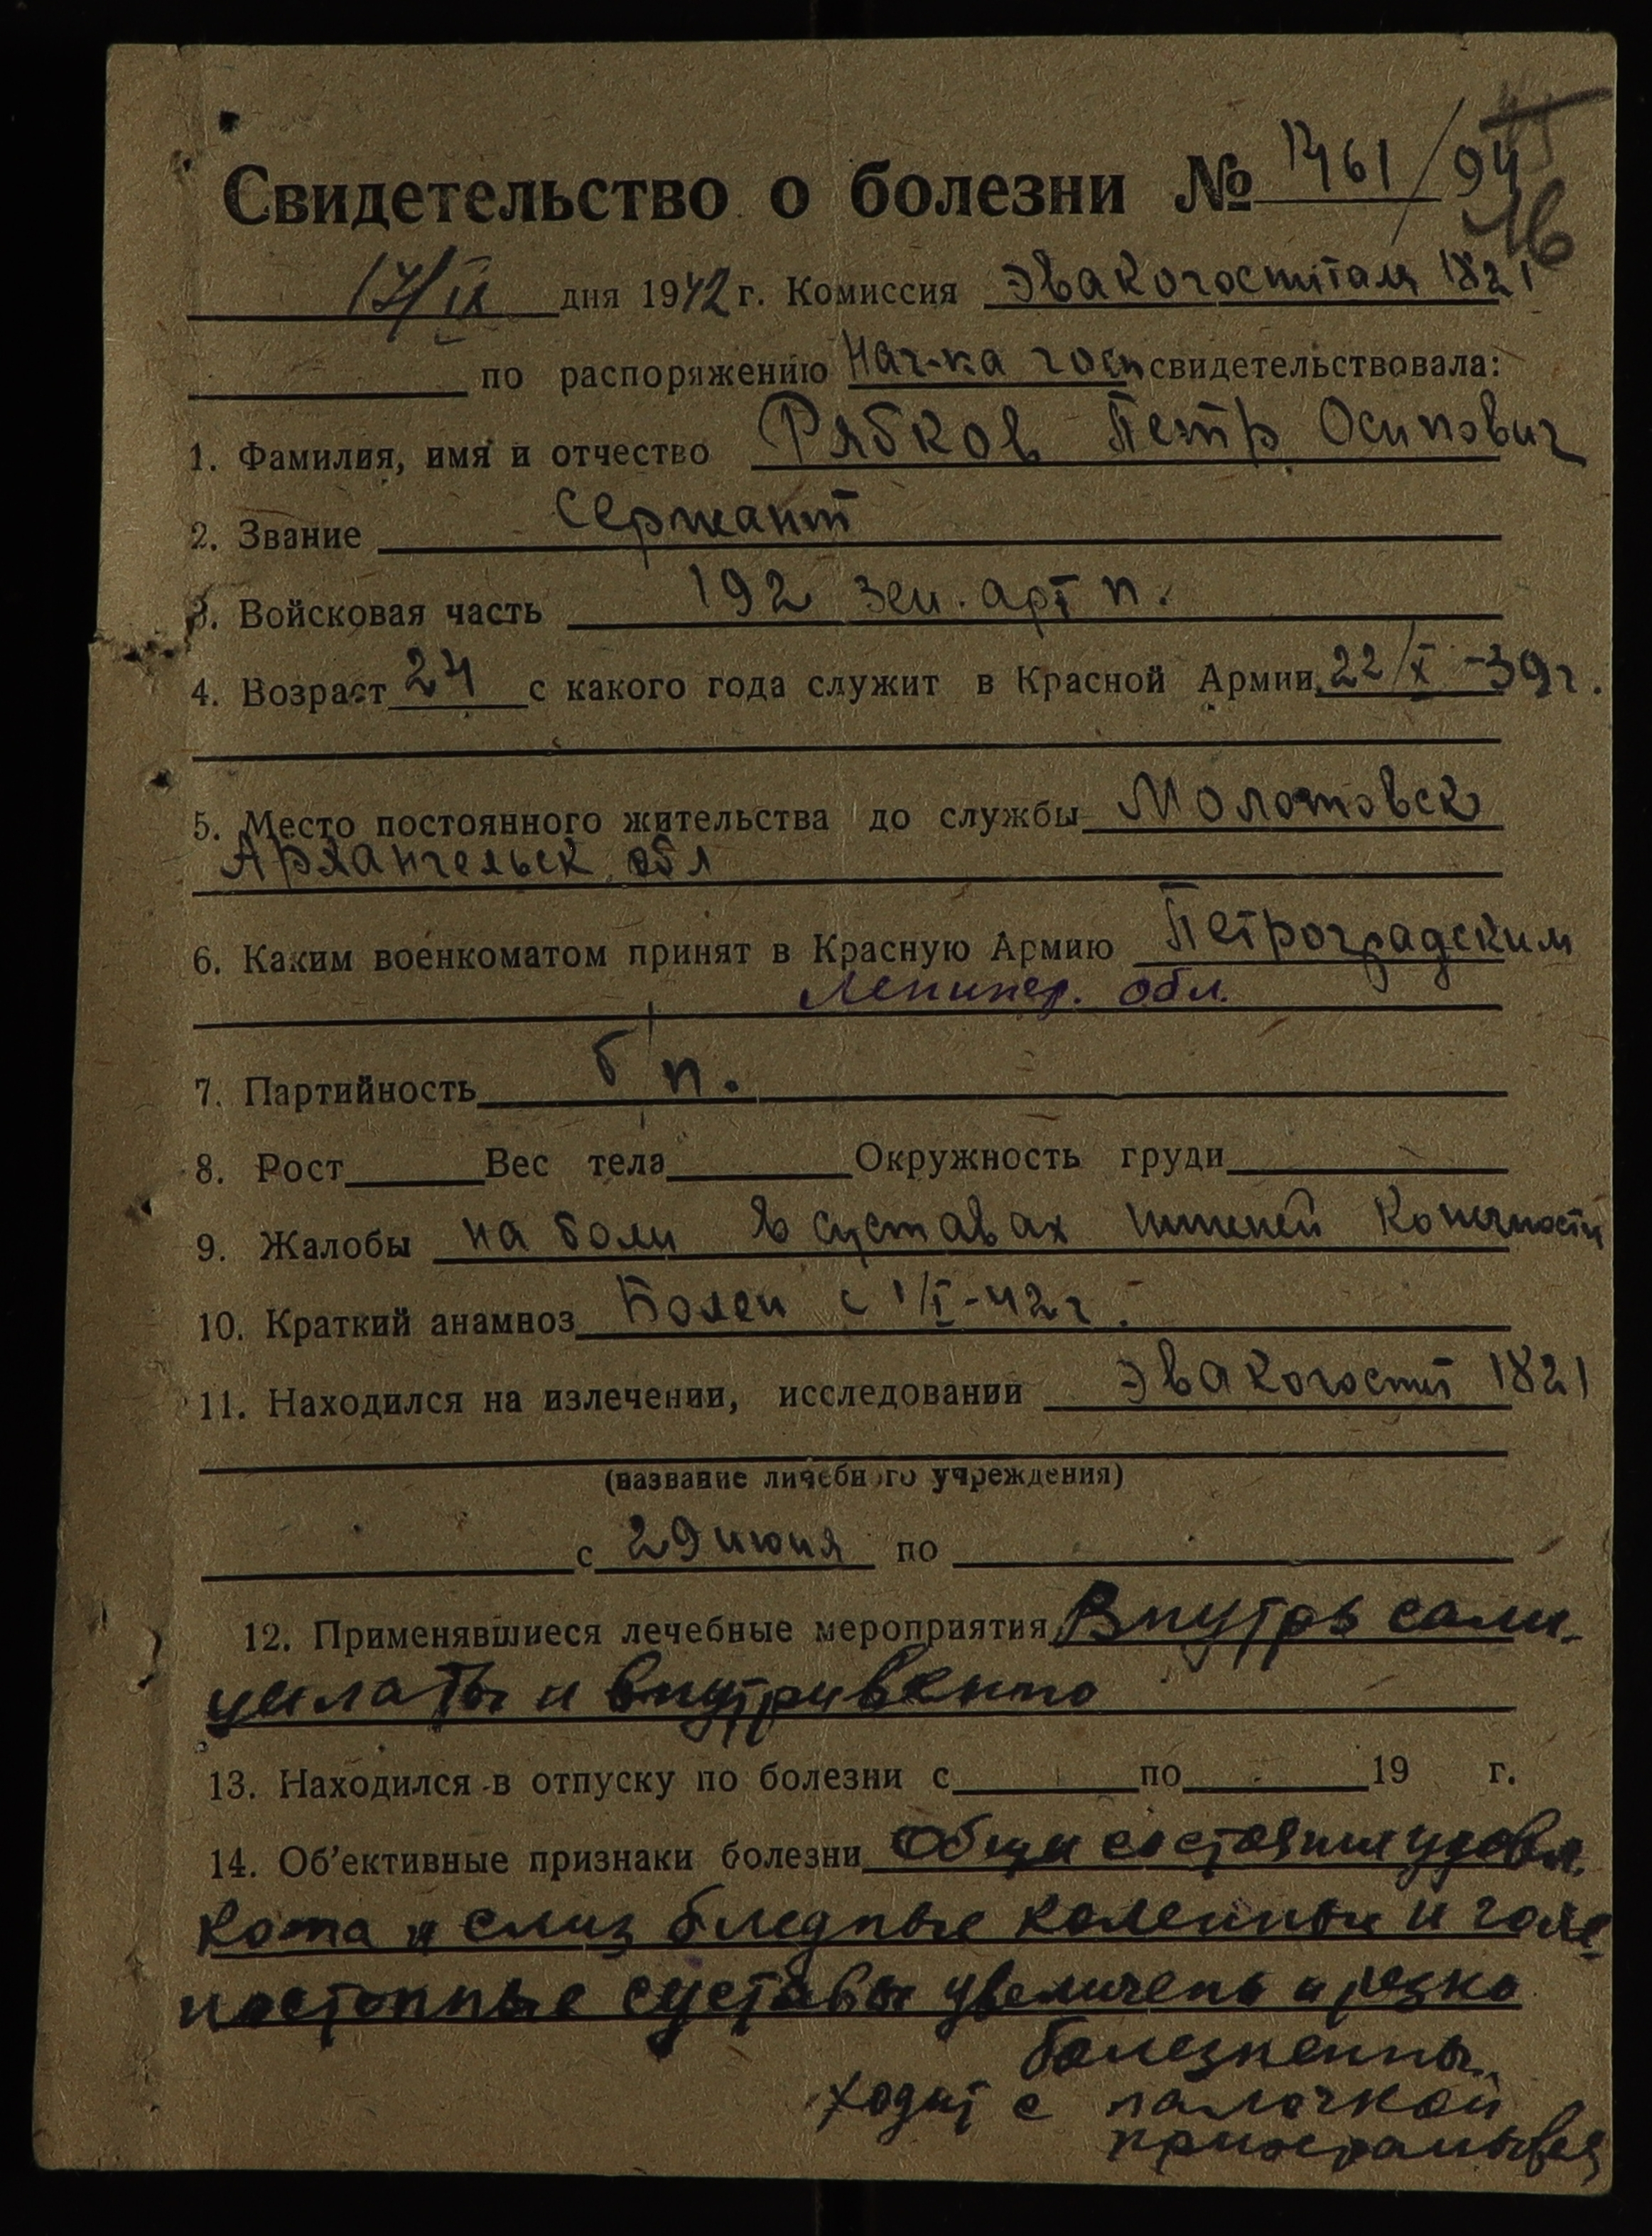 Свидетельство о болезни № 1461/94
16
17/IX дня 1942 г. Комиссия Эвакогоспиталя 1821
по распоряжению Нач-ка госп свидетельствовала:
1. Фамилия, имя и отчество Рябков Петр Осипович
2. Звание Сержант
3. Войсковая часть 192 зен. арт п.
4. Возраст 24 с какого года служит в Красной Армии 22/X-39г.
5. Место постоянного жительства до службы Молотовск
Архангельск обл
6. Каким военкоматом принят в Красную Армию Петроградским
Ленингр. обл.
7. Партийность б/п.
8. Рост Вес тела Окружность груди
9. Жалобы на боли в суставах нижней конечности
10. Краткий анамноз Болен с 1/I-42г.
11. Находился на излечении, исследовании Эвакогоспит 1821
(название личебного учреждения)
с 29 июня по
12. Применявшиеся лечебные мероприятия Внутрь сали-
цилаты и внутривенно
13. Находился в отпуску по болезни с по 19 г.
14. Об'ективные признаки болезни Общи состояние удовл.
Кожа и слиз бледные коленные и голе-
ностопные суставы увеличены и резко
болезненны.
Ходит с палочкой
прихрамывая